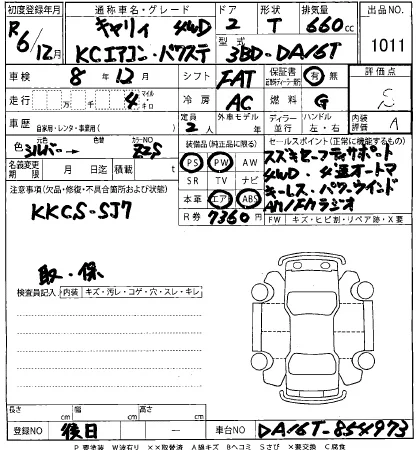 初度登録年月 通称車名・グレード ドア 形状 排気量 出品NO.
R6/12月 キャリィ 4WD 2 T 660cc 1011
KCエアコン・パワステ 型式 3BD-DA16T
車検 8年12月 シフト FAT 保証書 有 無 評価点
走行 万 千 4 マイル キロ 冷房 AC 燃料 G S
車歴 自家用・レンタ・事業用( ) 定員 2人 外車モデル 年 ディーラー 並行 ハンドル 左・右 内装評価 A
色 元色 シルバー 色替 カラーNO. ZZS 装備品(純正品に限る) セールスポイント(正常に機能するもの)
名義変更期限 月 日迄 積載 t PS PW AW スズキセーフティサポート
注意事項(欠品・修復・不具合箇所および状態) SR TV ナビ 4WD・4速オートマ
KKCS-SJ7 本革 エアB ABS キーレス・パワーウインド
R券 7360円 AM/FMラジオ
FW キズ・ヒビ割・リペア跡・X要
取・保
検査員記入 内装 キズ・汚レ・コゲ・穴・スレ・キレ
長さ cm 幅 cm 高さ cm
登録NO 後日 ー 車台NO DA16T-854973
P要塗装 W波有り XX取替済 A線キズ Bヘコミ Sさび X要交換 C腐食